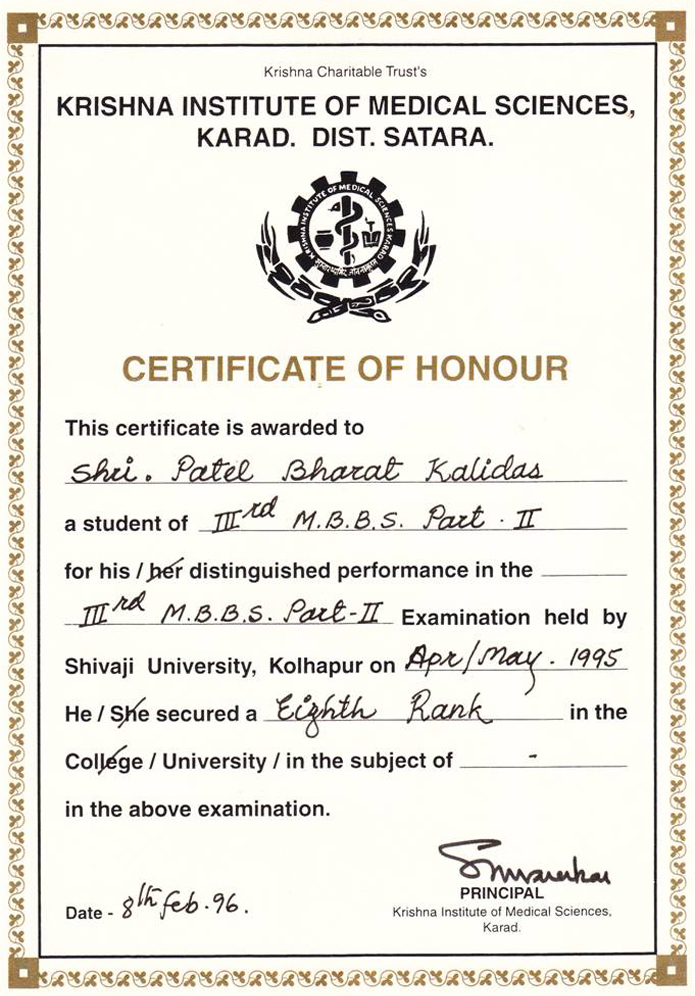 Krishna Charitable Trust's
KRISHNA INSTITUTE OF MEDICAL SCIENCES,
KARAD. DIST. SATARA.
KRISHNA INSTITUTE OF MEDICAL SCIENCES KARAD
CERTIFICATE OF HONOUR
This certificate is awarded to
Shri. Patel Bharat Kalidas
a student of IIIrd M.B.B.S. Part - II
for his / her distinguished performance in the
IIIrd M.B.B.S. Part-II Examination held by
Shivaji University, Kolhapur on Apr/May. 1995
He / She secured a Eighth Rank in the
College / University / in the subject of -
in the above examination.
PRINCIPAL
Date - 8th feb. 96.
Krishna Institute of Medical Sciences,
Karad.